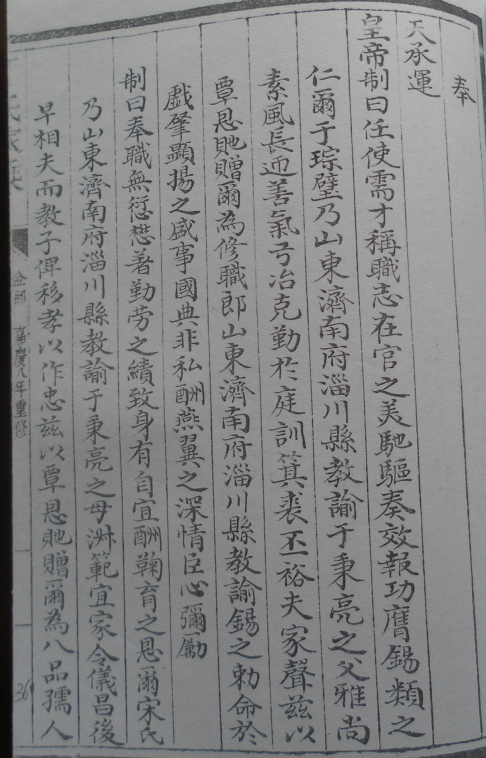 奉
天承運
皇帝制曰任使需才稱職志在官之美馳驅奏效報功膺錫類之
仁爾于琮璧乃山東濟南府淄川縣教諭于秉亮之父雅尚
素風長迎善氣弓冶克勤於庭訓箕裘丕裕夫家聲茲以
覃恩貤贈爾為修職郎山東濟南府淄川縣教諭錫之勅命於
戲肇顯揚之盛事國典非私酬燕翼之深情臣心彌勵
制曰奉職無愆懋著勤勞之績致身有自宜酬鞠育之恩爾宋氏
乃山東濟南府淄川縣教諭于秉亮之母淑範宜家令儀昌後
早相夫而教子俾移孝以作忠茲以覃恩貤贈爾為八品孺人
嘉慶八年重修
36